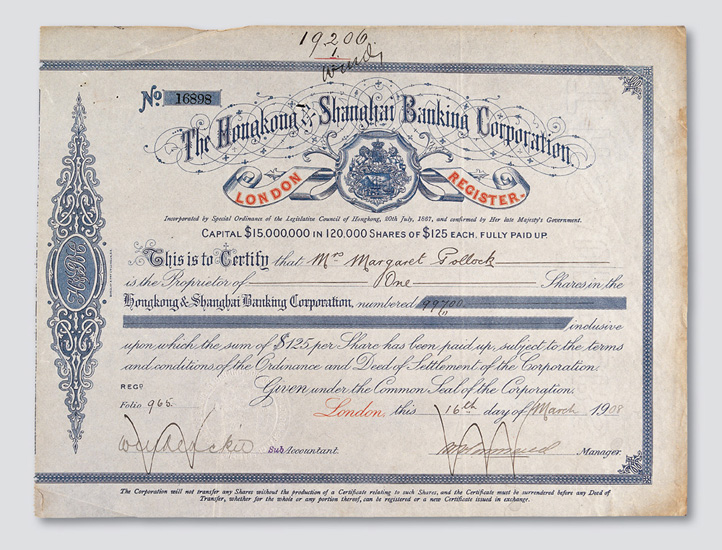 19,206.
No 16898
The Hongkong & Shanghai Banking Corporation
LONDON REGISTER.
Incorporated by Special Ordinance of the Legislative Council of Hongkong, 20th July, 1867, and confirmed by Her late Majesty's Government.
CAPITAL $15,000,000 IN 120,000 SHARES OF $125 EACH. FULLY PAID UP.
This is to Certify that Mrs Margaret Pollock
is the Proprietor of One Shares in the
Hongkong & Shanghai Banking Corporation, numbered 99700
inclusive
upon which the sum of $125 per Share has been paid up, subject to the terms
and conditions of the Ordinance and Deed of Settlement of the Corporation.
REGD.
Given under the Common Seal of the Corporation.
Folio 965.
London, this 16th day of March 1908
Sub Accountant.
Manager.
The Corporation will not transfer any Shares without the production of a Certificate relating to such Shares, and the Certificate must be surrendered before any Deed of
Transfer, whether for the whole or any portion thereof, can be registered or a new Certificate issued in exchange.